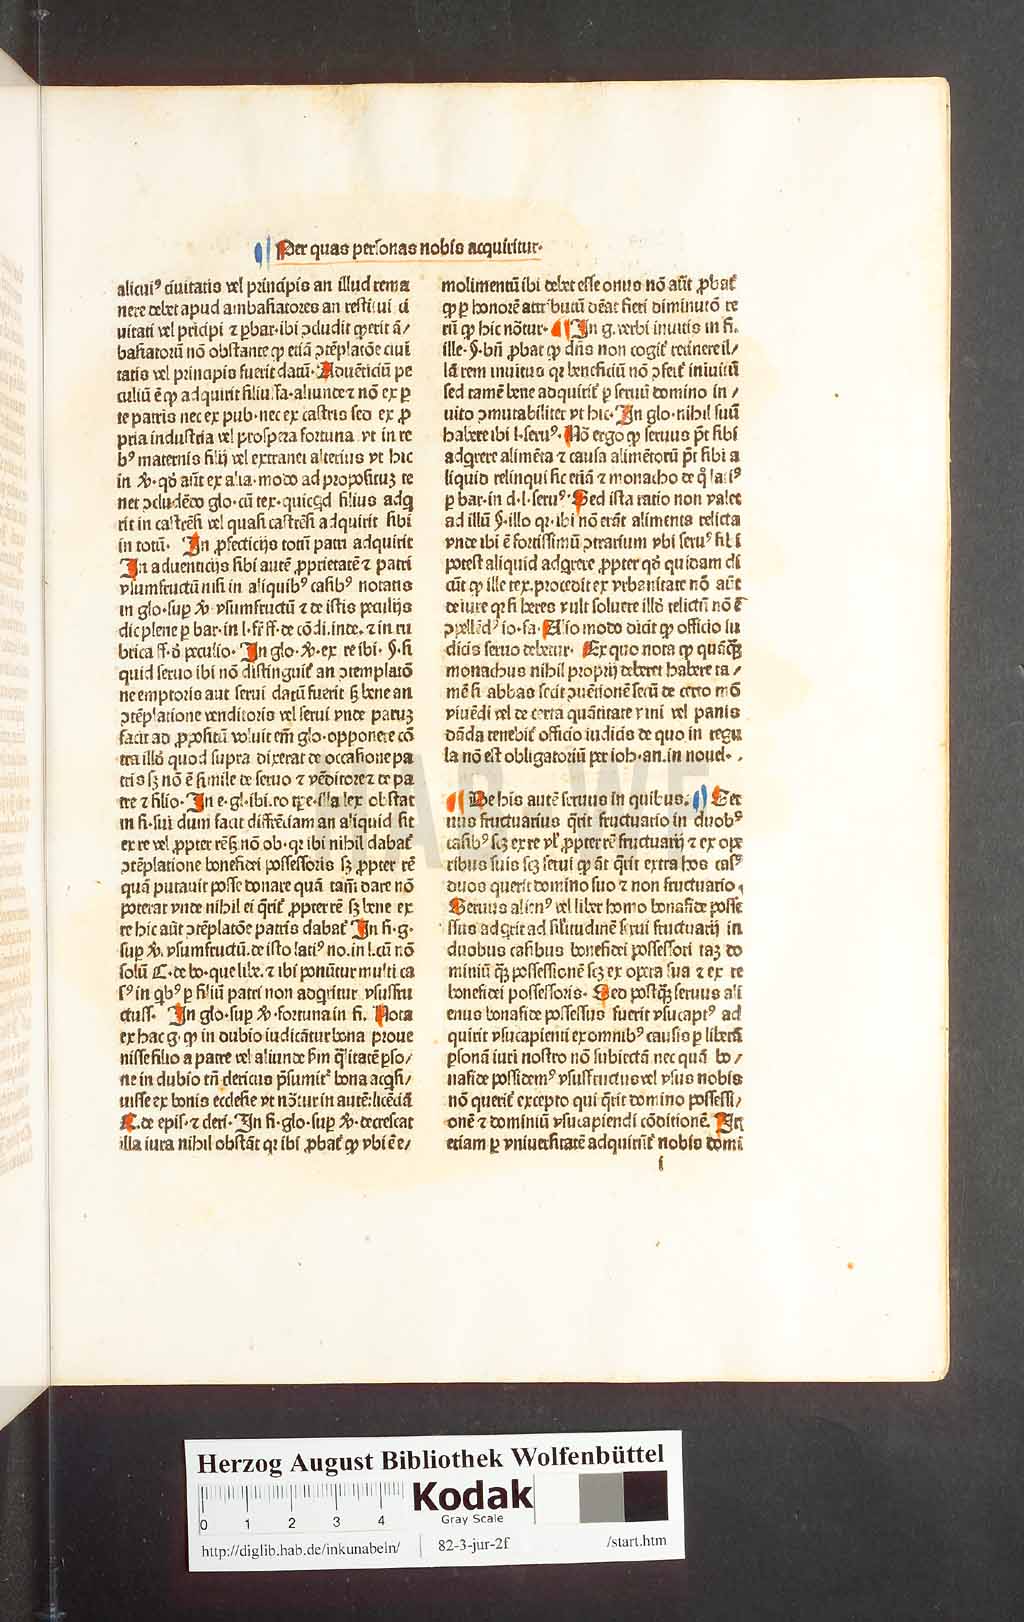 Per quas personas nobis acquiritur·
alicuiꝰ ciuitatis vel principis an illud rema
nere debet apud ambasiatores an restitui ci
uitati vel pricipi ⁊ ꝑ bar· ibi ↄcludit ꝙ erit ā/
basiatorū nō obstante ꝙ etiā ↄtēplatōe ciui
tatis vel principis fuerit datū· Aduēticiū pe
culiū ē ꝙ adquirit filiuſ fa· aliunde ⁊ nō ex ꝑ
te patris nec ex pub· nec ex castris sed ex ꝓ
pria industria vel prospera fortuna vt in re
bꝰ maternis filij vel extranei alterius vt hic
in
net ↄcludēdo glo· cū tex· quicqd filius adq
rit in castrēsi vel quasi castrēsi adquirit sibi
in totū· In ꝓfecticijs totū patri adquirit
In aduenticijs sibi autē ꝓprietatē ⁊ patri
vsumfructū nisi in aliquibꝰ casibꝰ notatis
in glo· suꝑ vsumfructū ⁊ de istis peculijs
dic plene ꝑ bar· in l· ff· de cōdi· inde· ⁊ in ru
brica ff· ō peculio· In glo· ex re ibi· §· si
quid seruo ibi nō distinguit an ↄtemplatō
ne emptoris aut serui datū fuerit sꝫ bene an
ↄtēplatione venditoris vel serui vnde paruꝫ
facit ad ꝓpositū voluit em̄ glo· opponere cō
tra illd quod supra dixerat de occasione pa
tris sꝫ nō ē simile de seruo ⁊ vēditore ⁊ de pa
tre ⁊ filio· In e· gl· ibi· illa lex obstat
in fi· sui dum facit differētiam an aliquid sit
ex re vel ꝓpter rē sꝫ nō ob· qꝛ ibi nihil dabat
ↄtēplatione bonefidei possessoris sꝫ ꝓpter rē
quā putauit posse donare quā tam̄ dare nō
poterat vnde nihil ei q̄rit ꝓpter rē sꝫ bene ex
re hic aūt ↄtēplatōe patris dabat In fi· g·
suꝑ vsumfructū· de isto latiꝰ no· in l· cū nō
solū C· de bo· que libe· ⁊ ibi ponūtur multi ca
sꝰ in qbꝰ ꝑ filiū patri non adqritur vsusfru
ctuſ· In glo· suꝑ fortuna in fi· Nota
ex hac g· ꝙ in dubio iudicātur bona proue
nisse filio a patre vel aliunde ꝑso/
ne in dubio tn̄ clericus p̄sumit bona acqsi/
uisse ex bonis ecclesie vt nōtur in autē· licētiā
C· de epis· ⁊ cleri· In fi· glo· suꝑ decrescat
illa iura nihil obstāt qꝛ ibi ꝓbat ꝙ vbi ē e/
molimentū ibi debet esse onus nō aūt ꝓbat
ꝙ ꝑ honorē attributū debeat fieri diminutō re
rū ꝙ hic nōtur· In g· verbi inuitis in fi·
ille· §· bn̄ ꝓbat ꝙ dn̄s non cogit retinere il/
lā rem inuitus qꝛ beneficiū nō ↄfert inuitū
sed tamē bene adquirit ꝑ seruū domino in/
uito ↄmutabiliter vt hic· In glo· nihil suū
habere ibi l· seruꝰ· Nō ergo ꝙ seruus p̄t sibi
adqrere alimēta ⁊ causa alimētorū p̄t sibi a
liquid relinqui sic etiā ⁊ monacho de q̄ latiꝰ
ꝑ bar· in d· l· seruꝰ· Sed ista ratio non valet
ad illū §· illo qꝛ ibi nō erāt alimenta relicta
vnde ibi ē fortissimū ↄtrarium vbi seruꝰ sibi
potest aliquid adqrere ꝓpter qd quidam di
cūt ꝙ ille tex· procedit ex vrbanitate nō aūt
de iure qꝛ si heres vult soluere illd relictū nō ē
ↄpellēdꝰ io· fa· Alio modo dicit ꝙ officio iu
dicis seruo debetur· Ex quo nota ꝙ quāqꝫ
monachus nihil proprij deberet habere ta/
mē si abbas fecit ↄuētionē secū de certo mō
viuēdi vel de certa quātitate vini vel panis
dāda tenebit officio iudicis de quo in regu
la nō est obligatoriū per ioh· an· in nouel·
De his autē seruus in quibus· Ser
uus fructuarius q̄rit fructuario in duobꝰ
casibꝰ scꝫ ex re vel ꝓpter rē fructuarij ⁊ ex ope
ribus suis scꝫ serui qd āt q̄rit extra hos casꝰ
duos querit domino suo ⁊ non fructuario·
Seruus alienꝰ vel liber homo bonafide posse
ssus adqrit ad sil̄itudinē serui fructuarij in
duobus casibus bonefidei possessori taꝫ do
miniū qꝫ possessionē scꝫ ex opera sua ⁊ ex re
bonefidei possessoris· Sed postqꝫ seruus ali
enus bonafide possessus fuerit vsucaptꝰ ad
quirit vsucapienti ex omnibꝰ causis ꝑ liberā
ꝑsonā iuri nostro nō subiectā nec quā bo/
nafide possidemꝰ vsusfructus vel vsus nobis
nō querit excepto qui q̄rit domino possessi/
onē ⁊ dominiū vsucapiendi cōditionē· Itē
etiam ꝑ vniuersitatē adquirūt nobis domi
i
HAB WF
Herzog August Bibliothek Wolfenbüttel
0 1 2 3 4
Kodak
Gray Scale
http://diglib.hab.de/inkunabeln/ 82-3-jur-2f /start.htm